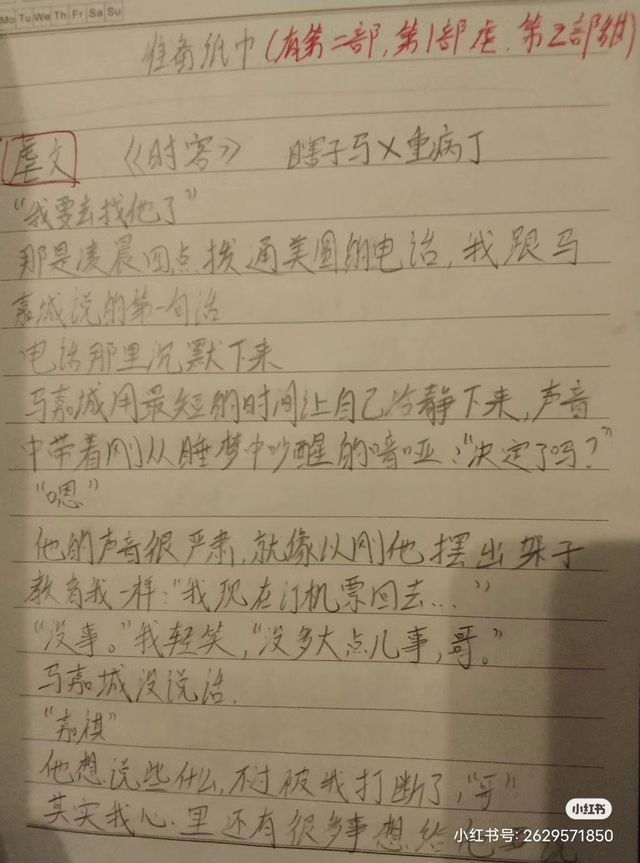 Mo Tu We Th Fr Sa Su
准备纸巾(有第二部,第1部虐,第2部甜)
虐文 《时客》 瞎子马×重病丁
“我要去找他了”
那是凌晨四点拨通美国的电话,我跟马
嘉城说的第一句话
电话那里沉默下来
马嘉城用最短的时间让自己冷静下来,声音
中带着刚从睡梦中吵醒的喑哑:“决定了吗?”
“嗯”
他的声音很严肃,就像以刚他摆出架子
教育我一样:“我现在订机票回去...”
“没事。”我轻笑,“没多大点儿事,哥。”
马嘉城没说话.
“嘉祺”
他想说些什么,不过被我打断了,“哥”
其实我心里还有很多事想给
小红书
小红书号: 2629571850